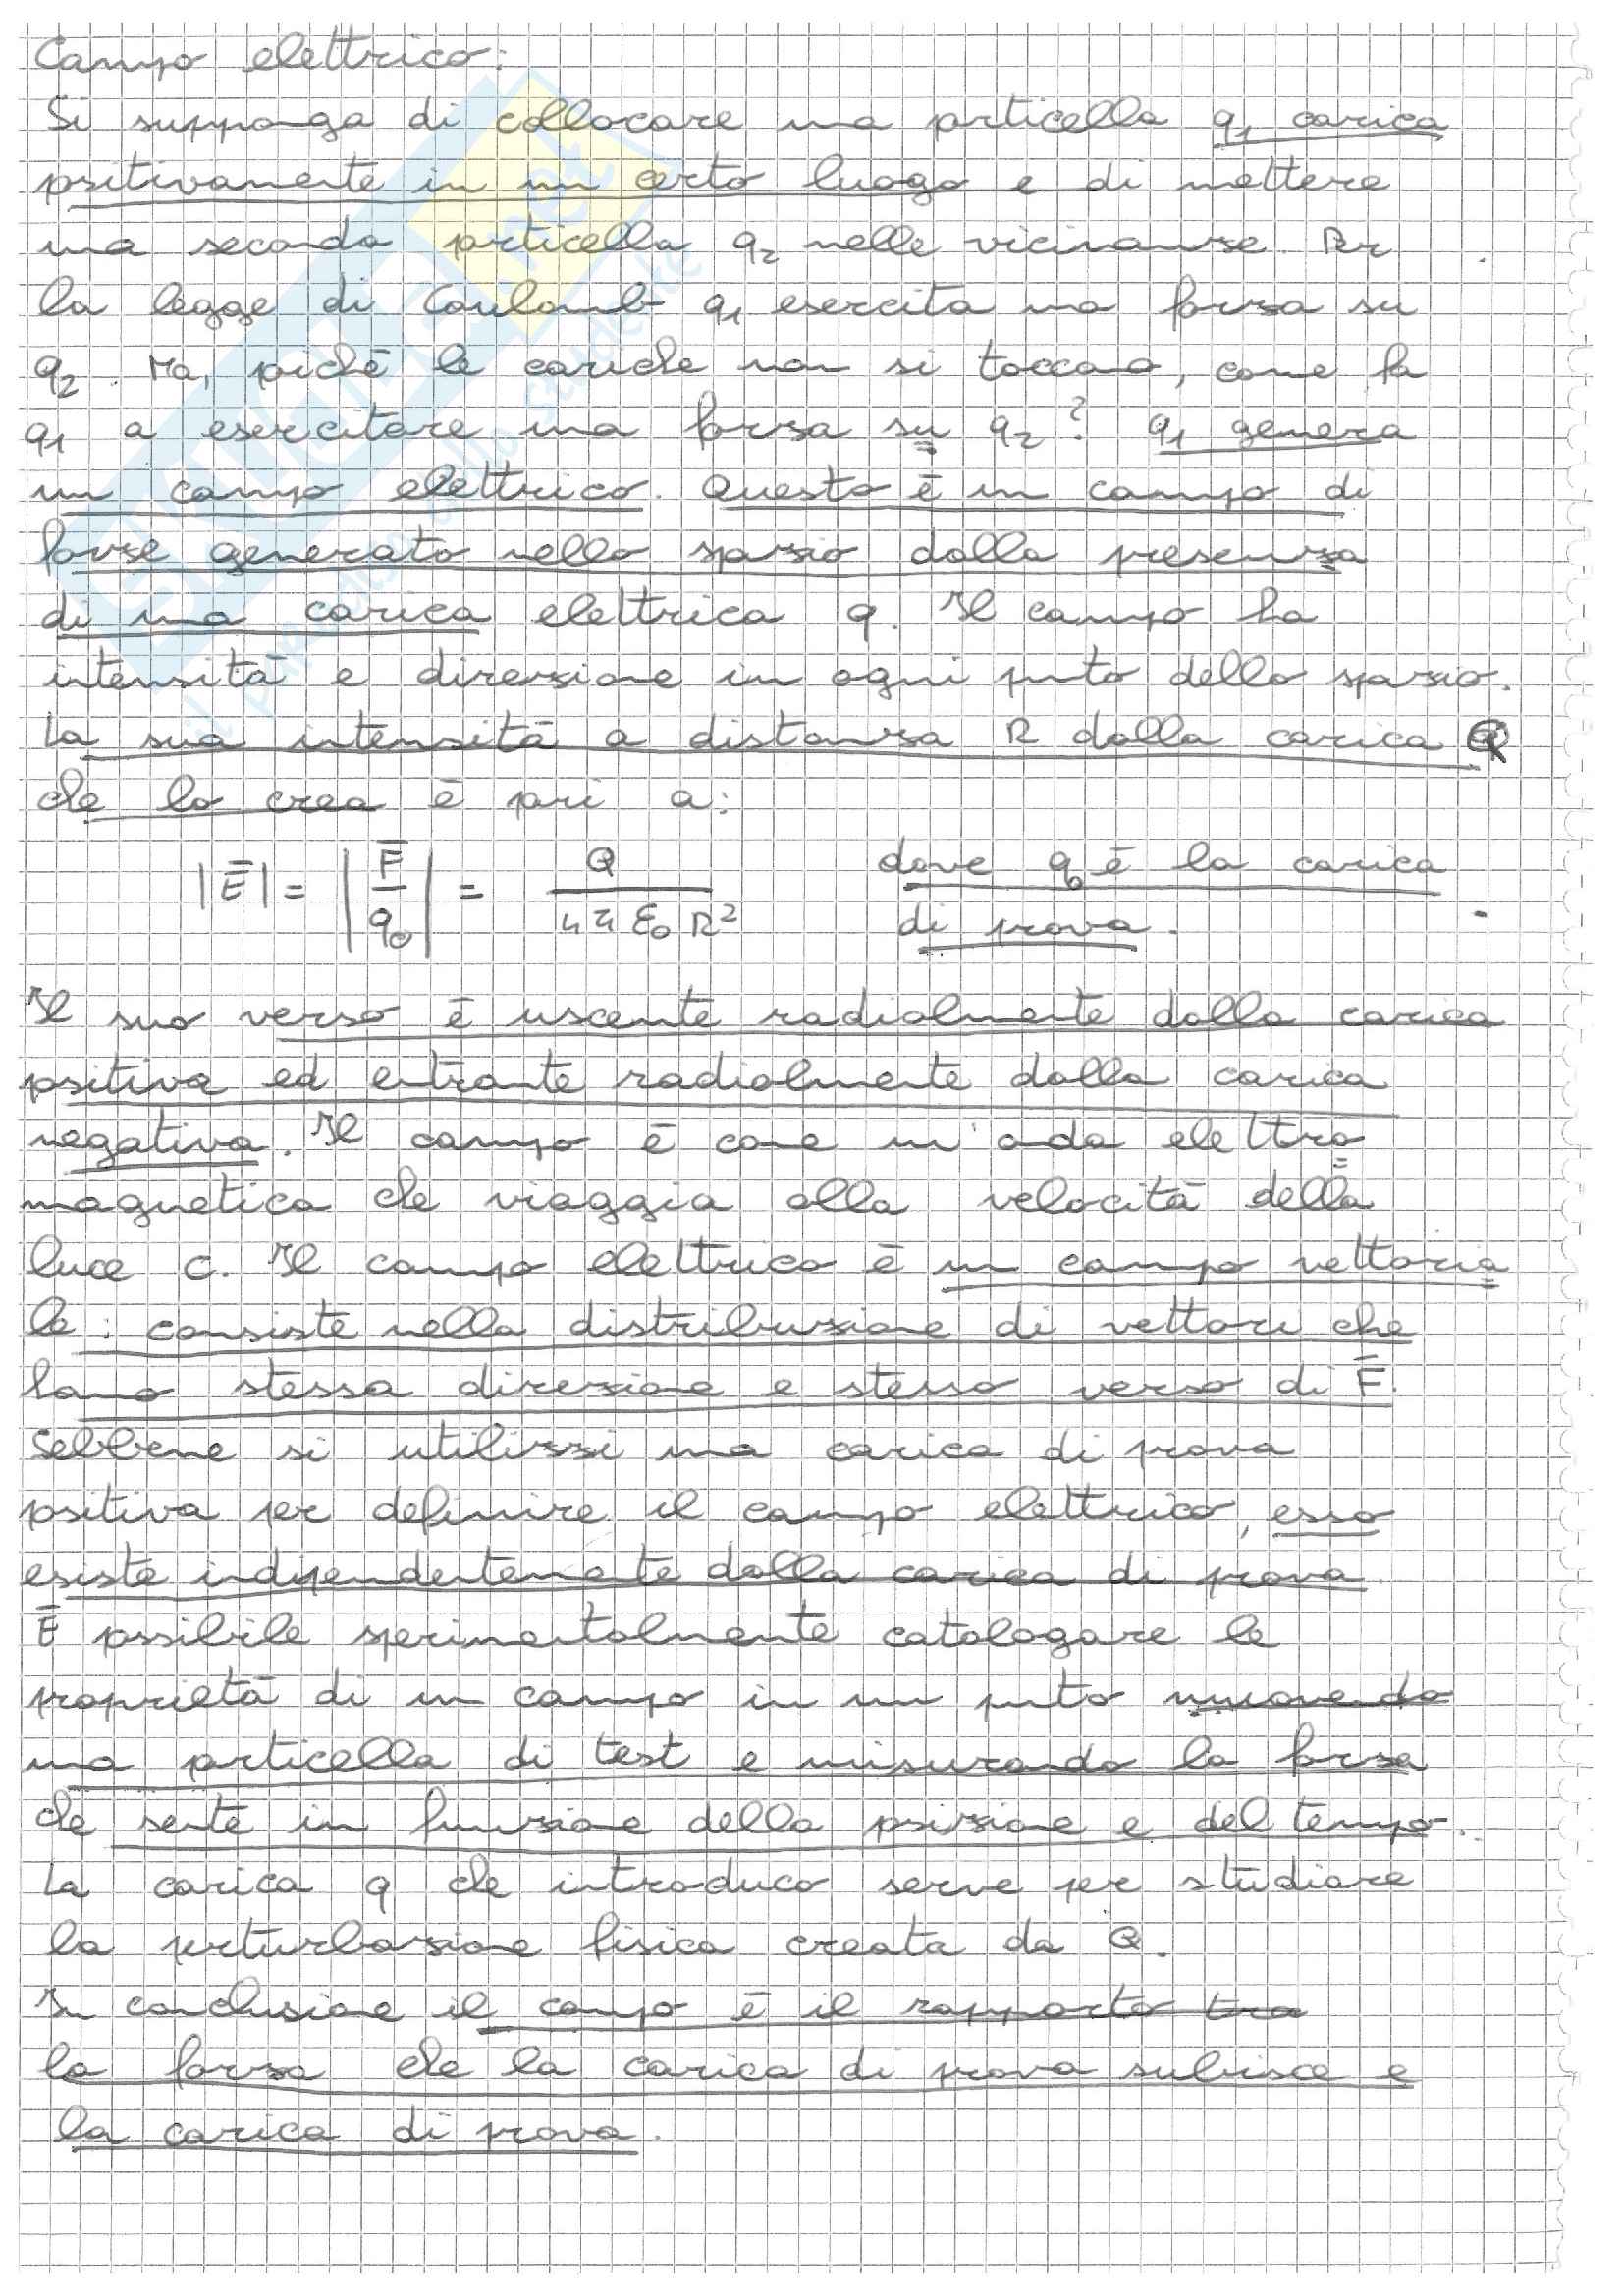 Campo elettrico:
Si supponga di collocare una particella q1 carica
positivamente in un certo luogo e di mettere
una seconda particella q2 nelle vicinanze. Per
la legge di Coulomb q1 esercita una forza su
q2. Ma, poiché le cariche non si toccano, come fa
q1 a esercitare una forza su q2? q1 genera
un campo elettrico. Questo è un campo di
forze generato nello spazio dalla presenza
di una carica elettrica q. Il campo ha
intensità e direzione in ogni punto dello spazio.
La sua intensità a distanza R dalla carica Q
che lo crea è pari a:
|E̅| = |F̅/q0| = Q/(4πε0R²) dove q0 è la carica
di prova.
Il suo verso è uscente radialmente dalla carica
positiva ed entrante radialmente dalla carica
negativa. Il campo è come un'onda elettro
magnetica che viaggia alla velocità della
luce c. Il campo elettrico è un campo vettoria
le: consiste nella distribuzione di vettori che
hanno stessa direzione e stesso verso di F̅.
Sebbene si utilizzi una carica di prova
positiva per definire il campo elettrico, esso
esiste indipendentemente dalla carica di prova.
È possibile sperimentalmente catalogare le
proprietà di un campo in un punto muovendo
una particella di test e misurando la forza
che sente in funzione della posizione e del tempo.
La carica q che introduco serve per studiare
la perturbazione fisica creata da Q.
In conclusione il campo è il rapporto tra
la forza che la carica di prova subisce e
la carica di prova.